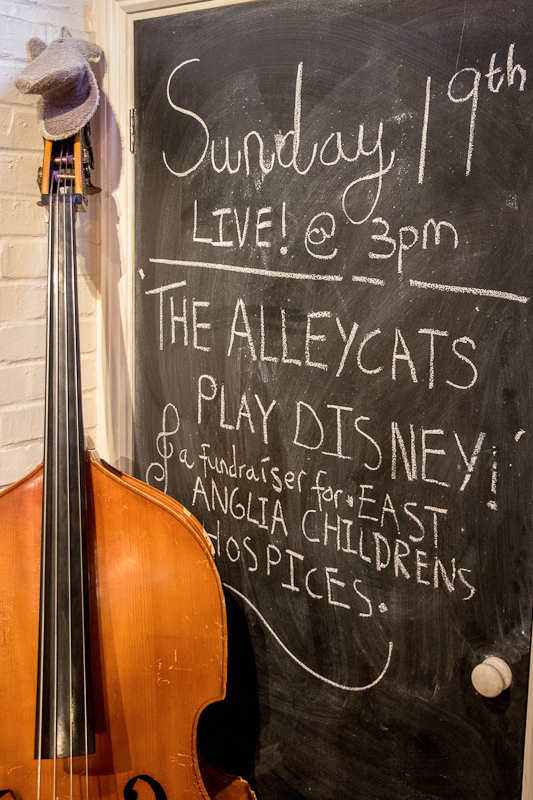 Sunday 19th
LIVE! @ 3pm
'THE ALLEYCATS
PLAY DISNEY!'
a fundraiser for EAST
ANGLIA CHILDRENS
HOSPICES.